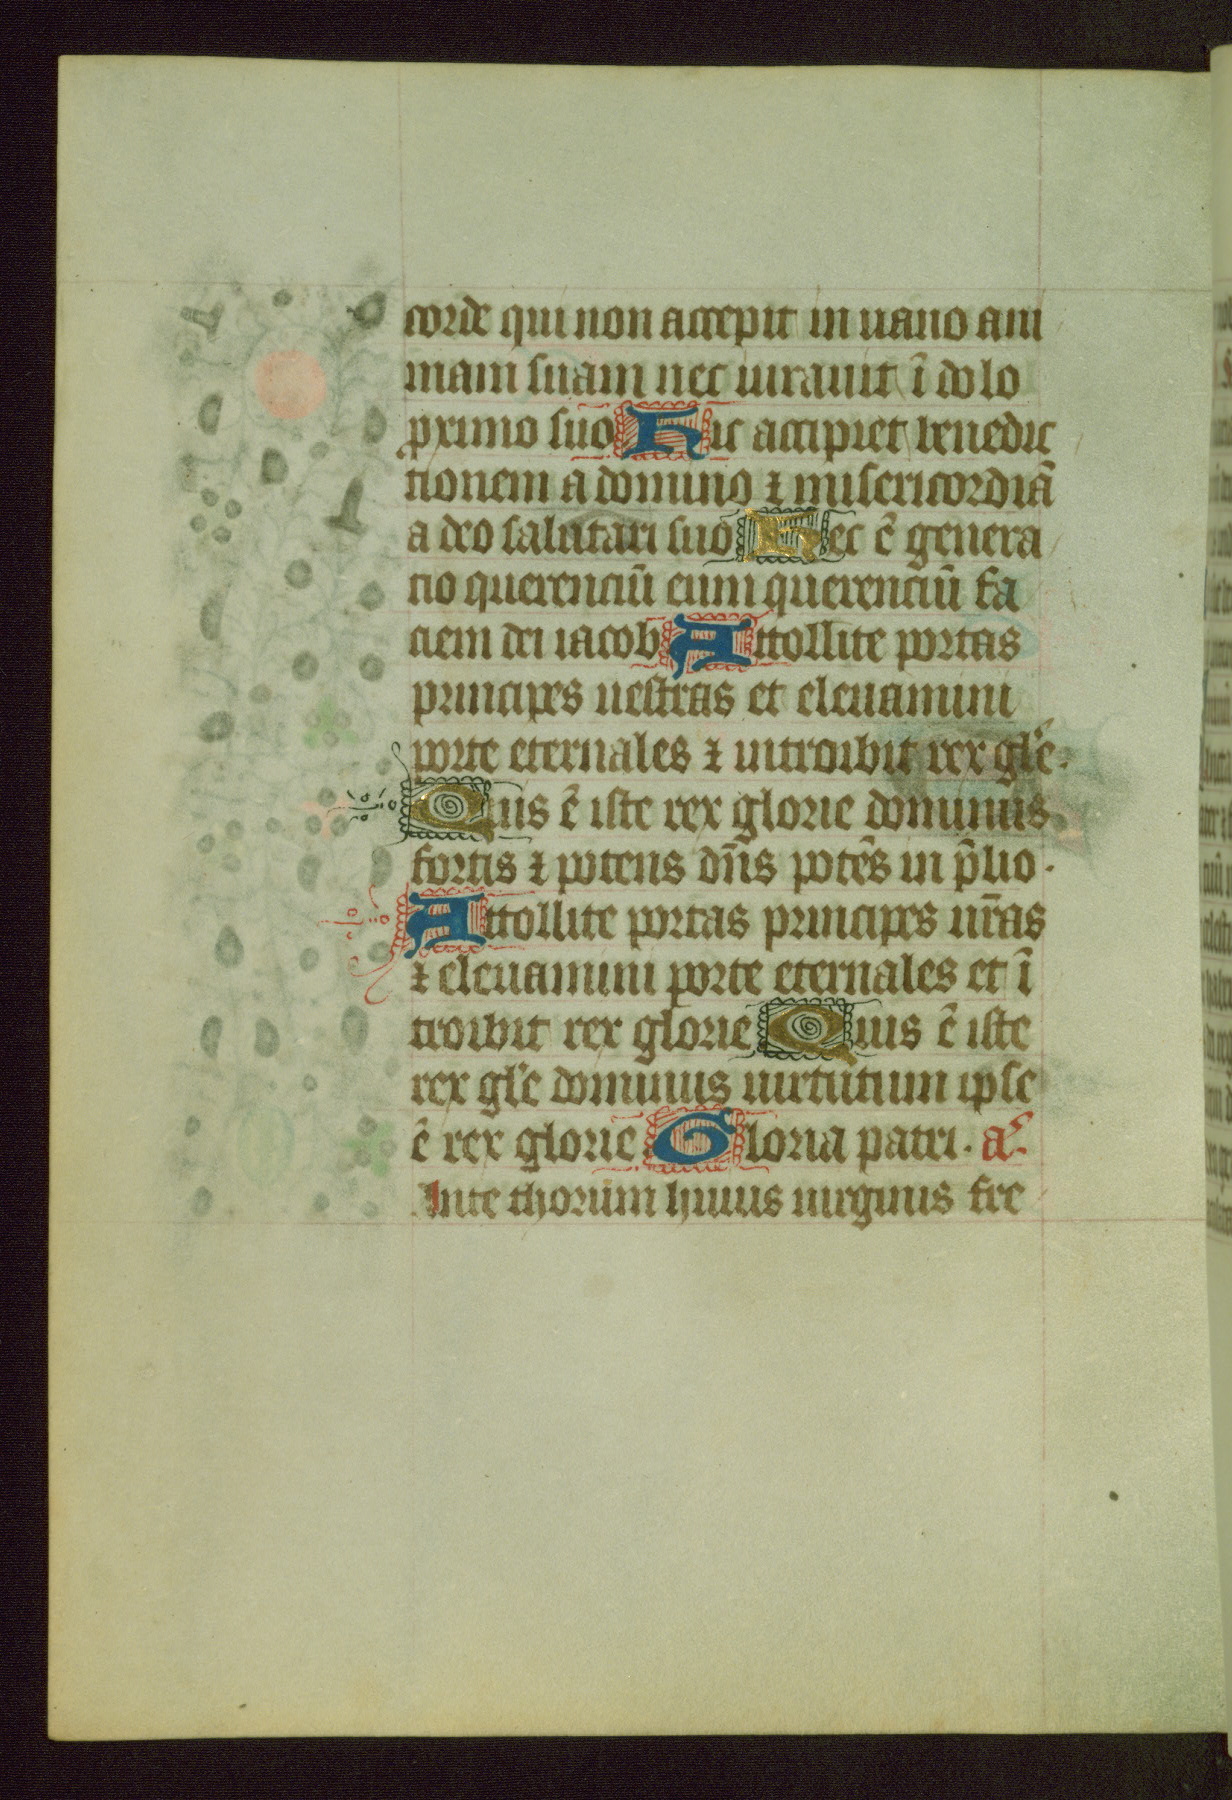 corde qui non accepit in uano ani
mam suam nec iurauit ī dolo
ꝓximo suo Hic accipiet benedic
tionem a domino ⁊ misericordiā
a deo salutari suo Hec ē genera
tio querenciū eum querenciū fa
ciem dei iacob Attollite portas
principes uestras et eleuamini
porte eternales ⁊ introibit rex gl'e.
Quis ē iste rex glorie dominus
fortis ⁊ potens dn̄s potēs in p̄lio.
Attollite portas principes ur̄as
⁊ eleuamini porte eternales et ī
troibit rex glorie Quis ē iste
rex gl'e dominus uirtutum ipse
ē rex glorie Gloria patri. a'.
Ante thorum huius uirginis fre